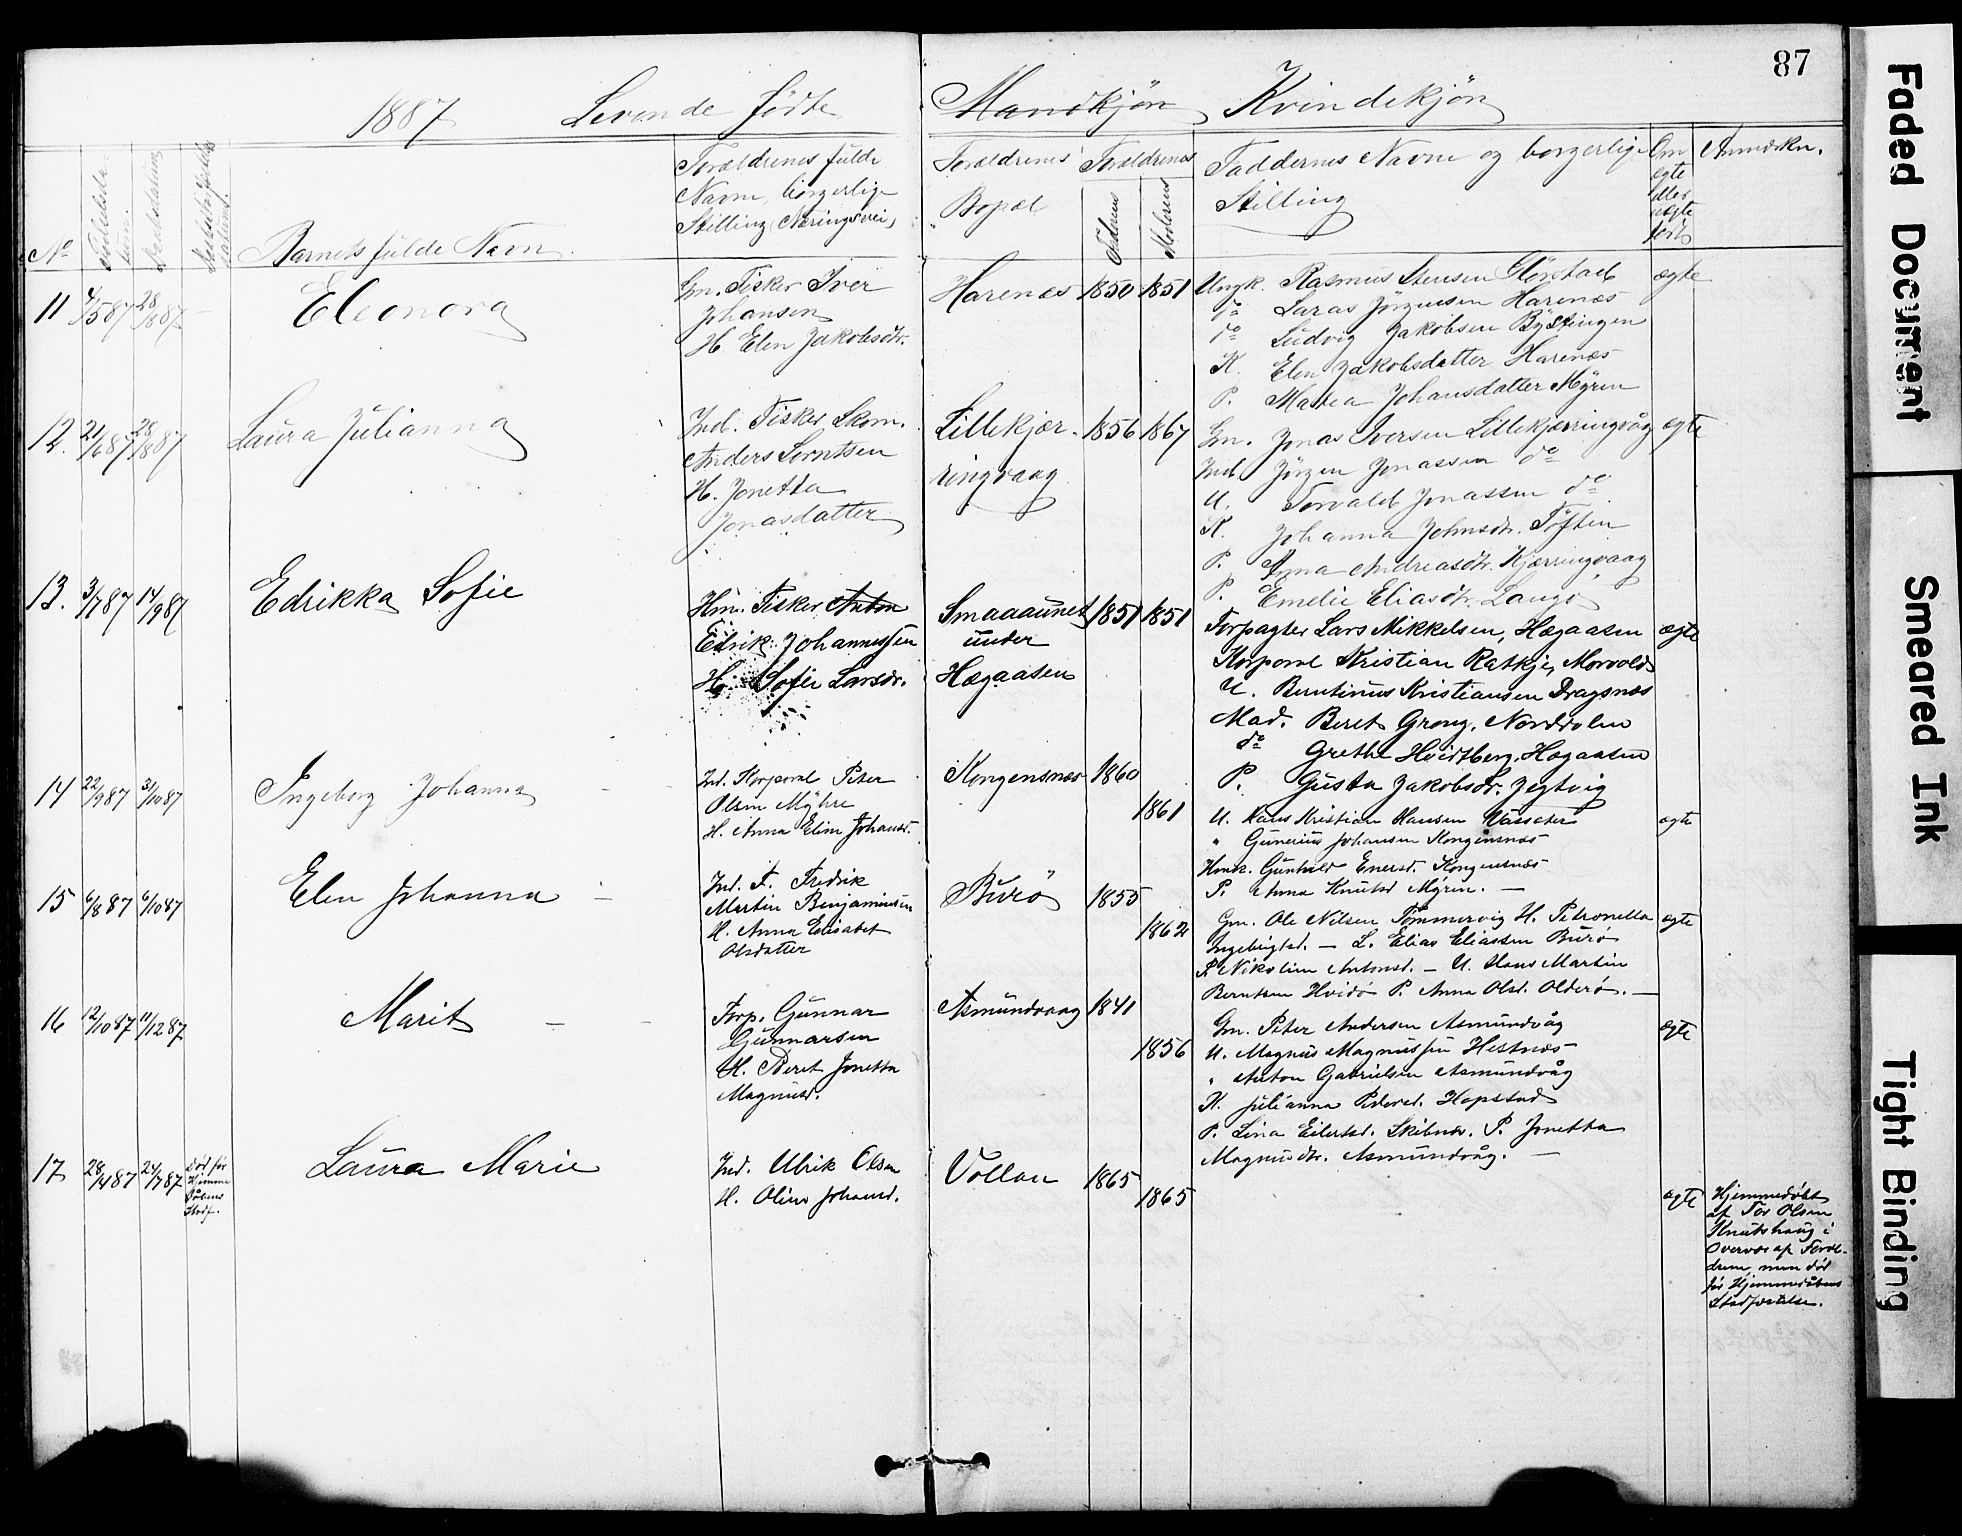 87
1887 Levende Fødte Mandkjön Kvindekjön
No
Fødselsda-
tum.
Daabsdatum
Barnets fulde Navn
Forældrenes fulde
Navne, borgerlige
Stilling (Næringsvei)
Forældrenes
Bopæl
Forældrenes
Faderens
Moderens
Faddernes Navne og borgerlige
Stilling
Om
ægte
eller
uægte
født
Anmærkn.
11 4/5 87 28/8 87 Eleonora
Gm. Fisker Iver
Johansen
H. Elen Jakobsdtr.
Harenæs 1850 1851
Ungk. Rasmus Stensen Glørstad
do Laras Jørgensen Harenæs
do Ludvig Jakobsen Bystingen
K. Elen Jakobsdatter Harenæs
P. Marea Johansdatter Myren
ægte
12. 21/6 87 28/8 87 Laura Julianna
Ind. Fisker, Skom.
Anders Lorntsen
H. Jonetta
Jonasdatter
Lillekjær-
ringvaag
1856 1867
Gm. Jonas Iversen Lillekjærringvåg
Ind. Jörgen Jonassen do
U. Torvald Jonassen do
K. Johanna Johnsdtr. Töften
P. Anna Andreasdtr. Kjærringvaag
P. Emelie Eliasdtr. Langö
ægte
13. 3/7 87 14/9 87 Edrikka Sofie
Hm. Fisker Anton
Edrik Johannessen
H. Sofie Larsdr.
Smaaaunet
under
Hægaasen
1851 1851
Forpagter Lars Mikkelsen, Hægaasen
Korporal Kristian Ratkje, Morvold
U. Berntinus Kristiansen Dragsnæs
Mad. Beret Grong, Norddalen
do Grethe Hvidtberg, Hægaasen
P. Gusta Jakobsdr. Jegtvig
ægte
14 22/9 87 31/10 87 Ingeborg Johanna
Ind. Korporal Peter
Olsen Myhre
H. Anna Eline Johansd.
Kongensnæs 1860
1861
U. Hans Kristian Hansen Vasseter
" Gunerius Johansen Kongensnæs
Hmk. Gunhild Enersd. Kongensnæs
P. Anna Knutsd Myren. —
ægte
15 6/8 87 6/10 87 Elen Johanna
Ind. F. Fredrik
Martin Benjaminsen
H. Anna Elisabet
Olsdatter
Burö 1855
1862
Gm. Ole Nilsen Tömmervig H. Petronella
Ingebrigtsd. — L. Elias Eliassen Burö
P. Nikoline Antonsd. — U. Hans Martin
Berntsen Hvidö P. Anna Olsd. Olderö. —
ægte
16 12/10 87 11/12 87 Marit — —
Forp. Gunnar
Gunnarsen
H. Beret Jonetta
Magnusd.
Asmundvaag 1841
1856
Gm. Peter Andersen Asmundvåg
U. Magnus Magnussen Hestnæs
" Anton Gabrielsen Asmundvåg
K. Julianna Pedersd. Hopstad
P. Lina Eilertsd. Skibnæs. P. Jonetta
Magnusdtr. Asmundvåg. —
ægte
17 28/4 87 24/7 87
Död før
Hjemme
dåbens
Stadf.
Laura Marie
Ind. Ulrik Olsen
H. Oline Johansd.
Vollan 1865
1865
ægte
Hjemmedöbt
af Tor Olsen
Knutshaug i
Overvær af Foræl-
drene, men död
før Hjemmedåbens
Stadfæstelse.
Faded Document
Smeared Ink
Tight Binding